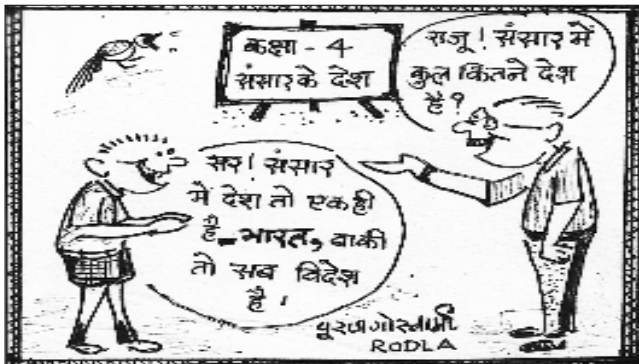 कक्षा - 4
संसार के देश
राजू! संसार में
कुल कितने देश
है?
सर! संसार
में देश तो एक ही
है - भारत, बाकी
तो सब विदेश
है।
पूरण गोस्वामी
RODLA